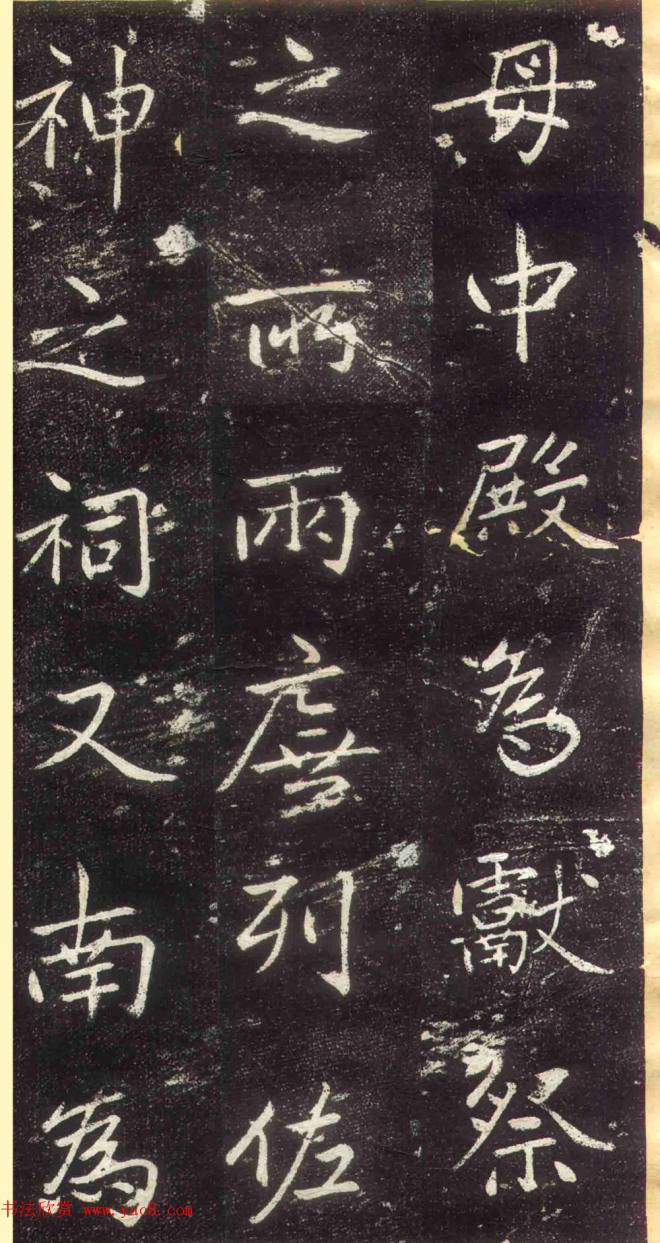 毋中殿為獻祭
之所兩廡列佐
神之祠又南為
书法欣赏 www.yac8.com